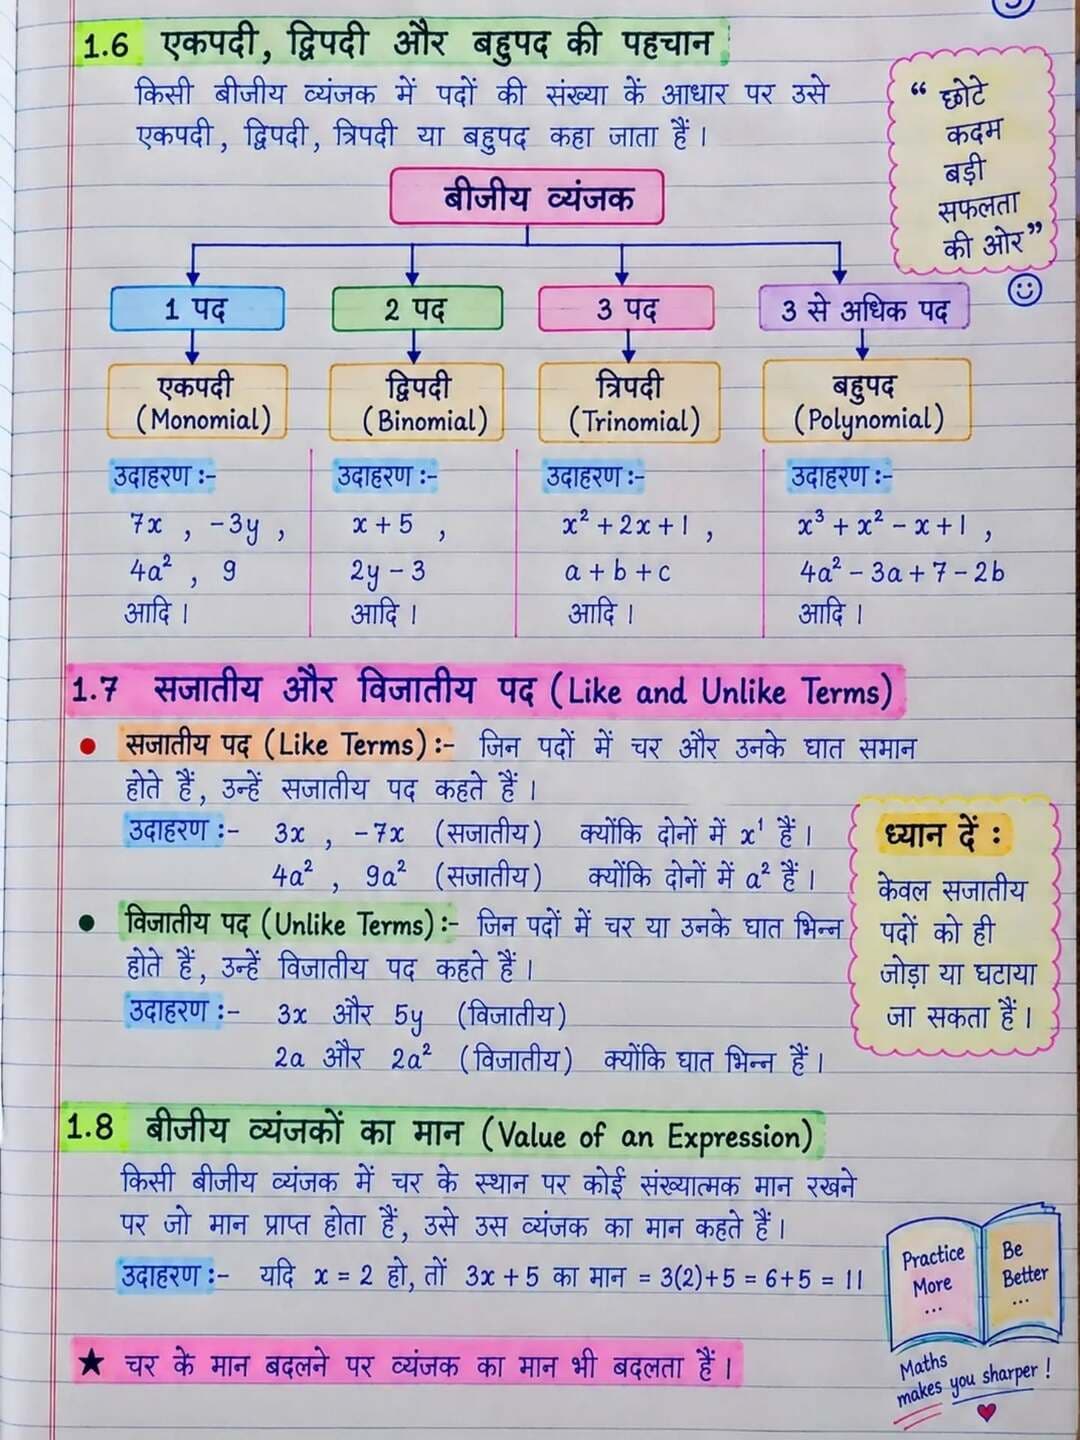 1.6 एकपदी, द्विपदी और बहुपद की पहचान
किसी बीजीय व्यंजक में पदों की संख्या कें आधार पर उसे
एकपदी, द्विपदी, त्रिपदी या बहुपद कहा जाता हैं।
“ छोटे
कदम
बड़ी
सफलता
की ओर”
बीजीय व्यंजक
1 पद
2 पद
3 पद
3 से अधिक पद
एकपदी
(Monomial)
द्विपदी
(Binomial)
त्रिपदी
(Trinomial)
बहुपद
(Polynomial)
उदाहरण :-
7x , -3y ,
4a² , 9
आदि।
उदाहरण :-
x + 5 ,
2y - 3
आदि।
उदाहरण :-
x² + 2x + 1 ,
a + b + c
आदि।
उदाहरण :-
x³ + x² - x + 1 ,
4a² - 3a + 7 - 2b
आदि।
1.7 सजातीय और विजातीय पद (Like and Unlike Terms)
• सजातीय पद (Like Terms) :- जिन पदों में चर और उनके घात समान
होते हैं, उन्हें सजातीय पद कहते हैं।
उदाहरण :- 3x , -7x (सजातीय) क्योंकि दोनों में x¹ हैं।
4a² , 9a² (सजातीय) क्योंकि दोनों में a² हैं।
• विजातीय पद (Unlike Terms) :- जिन पदों में चर या उनके घात भिन्न
होते हैं, उन्हें विजातीय पद कहते हैं।
उदाहरण :- 3x और 5y (विजातीय)
2a और 2a² (विजातीय) क्योंकि घात भिन्न हैं।
ध्यान दें :
केवल सजातीय
पदों को ही
जोड़ा या घटाया
जा सकता हैं।
1.8 बीजीय व्यंजकों का मान (Value of an Expression)
किसी बीजीय व्यंजक में चर के स्थान पर कोई संख्यात्मक मान रखने
पर जो मान प्राप्त होता हैं, उसे उस व्यंजक का मान कहते हैं।
उदाहरण :- यदि x = 2 हो, तों 3x + 5 का मान = 3(2)+5 = 6+5 = 11
★ चर कें मान बदलने पर व्यंजक का मान भी बदलता हैं।
Practice
More
...
Be
Better
...
Maths
makes you sharper !